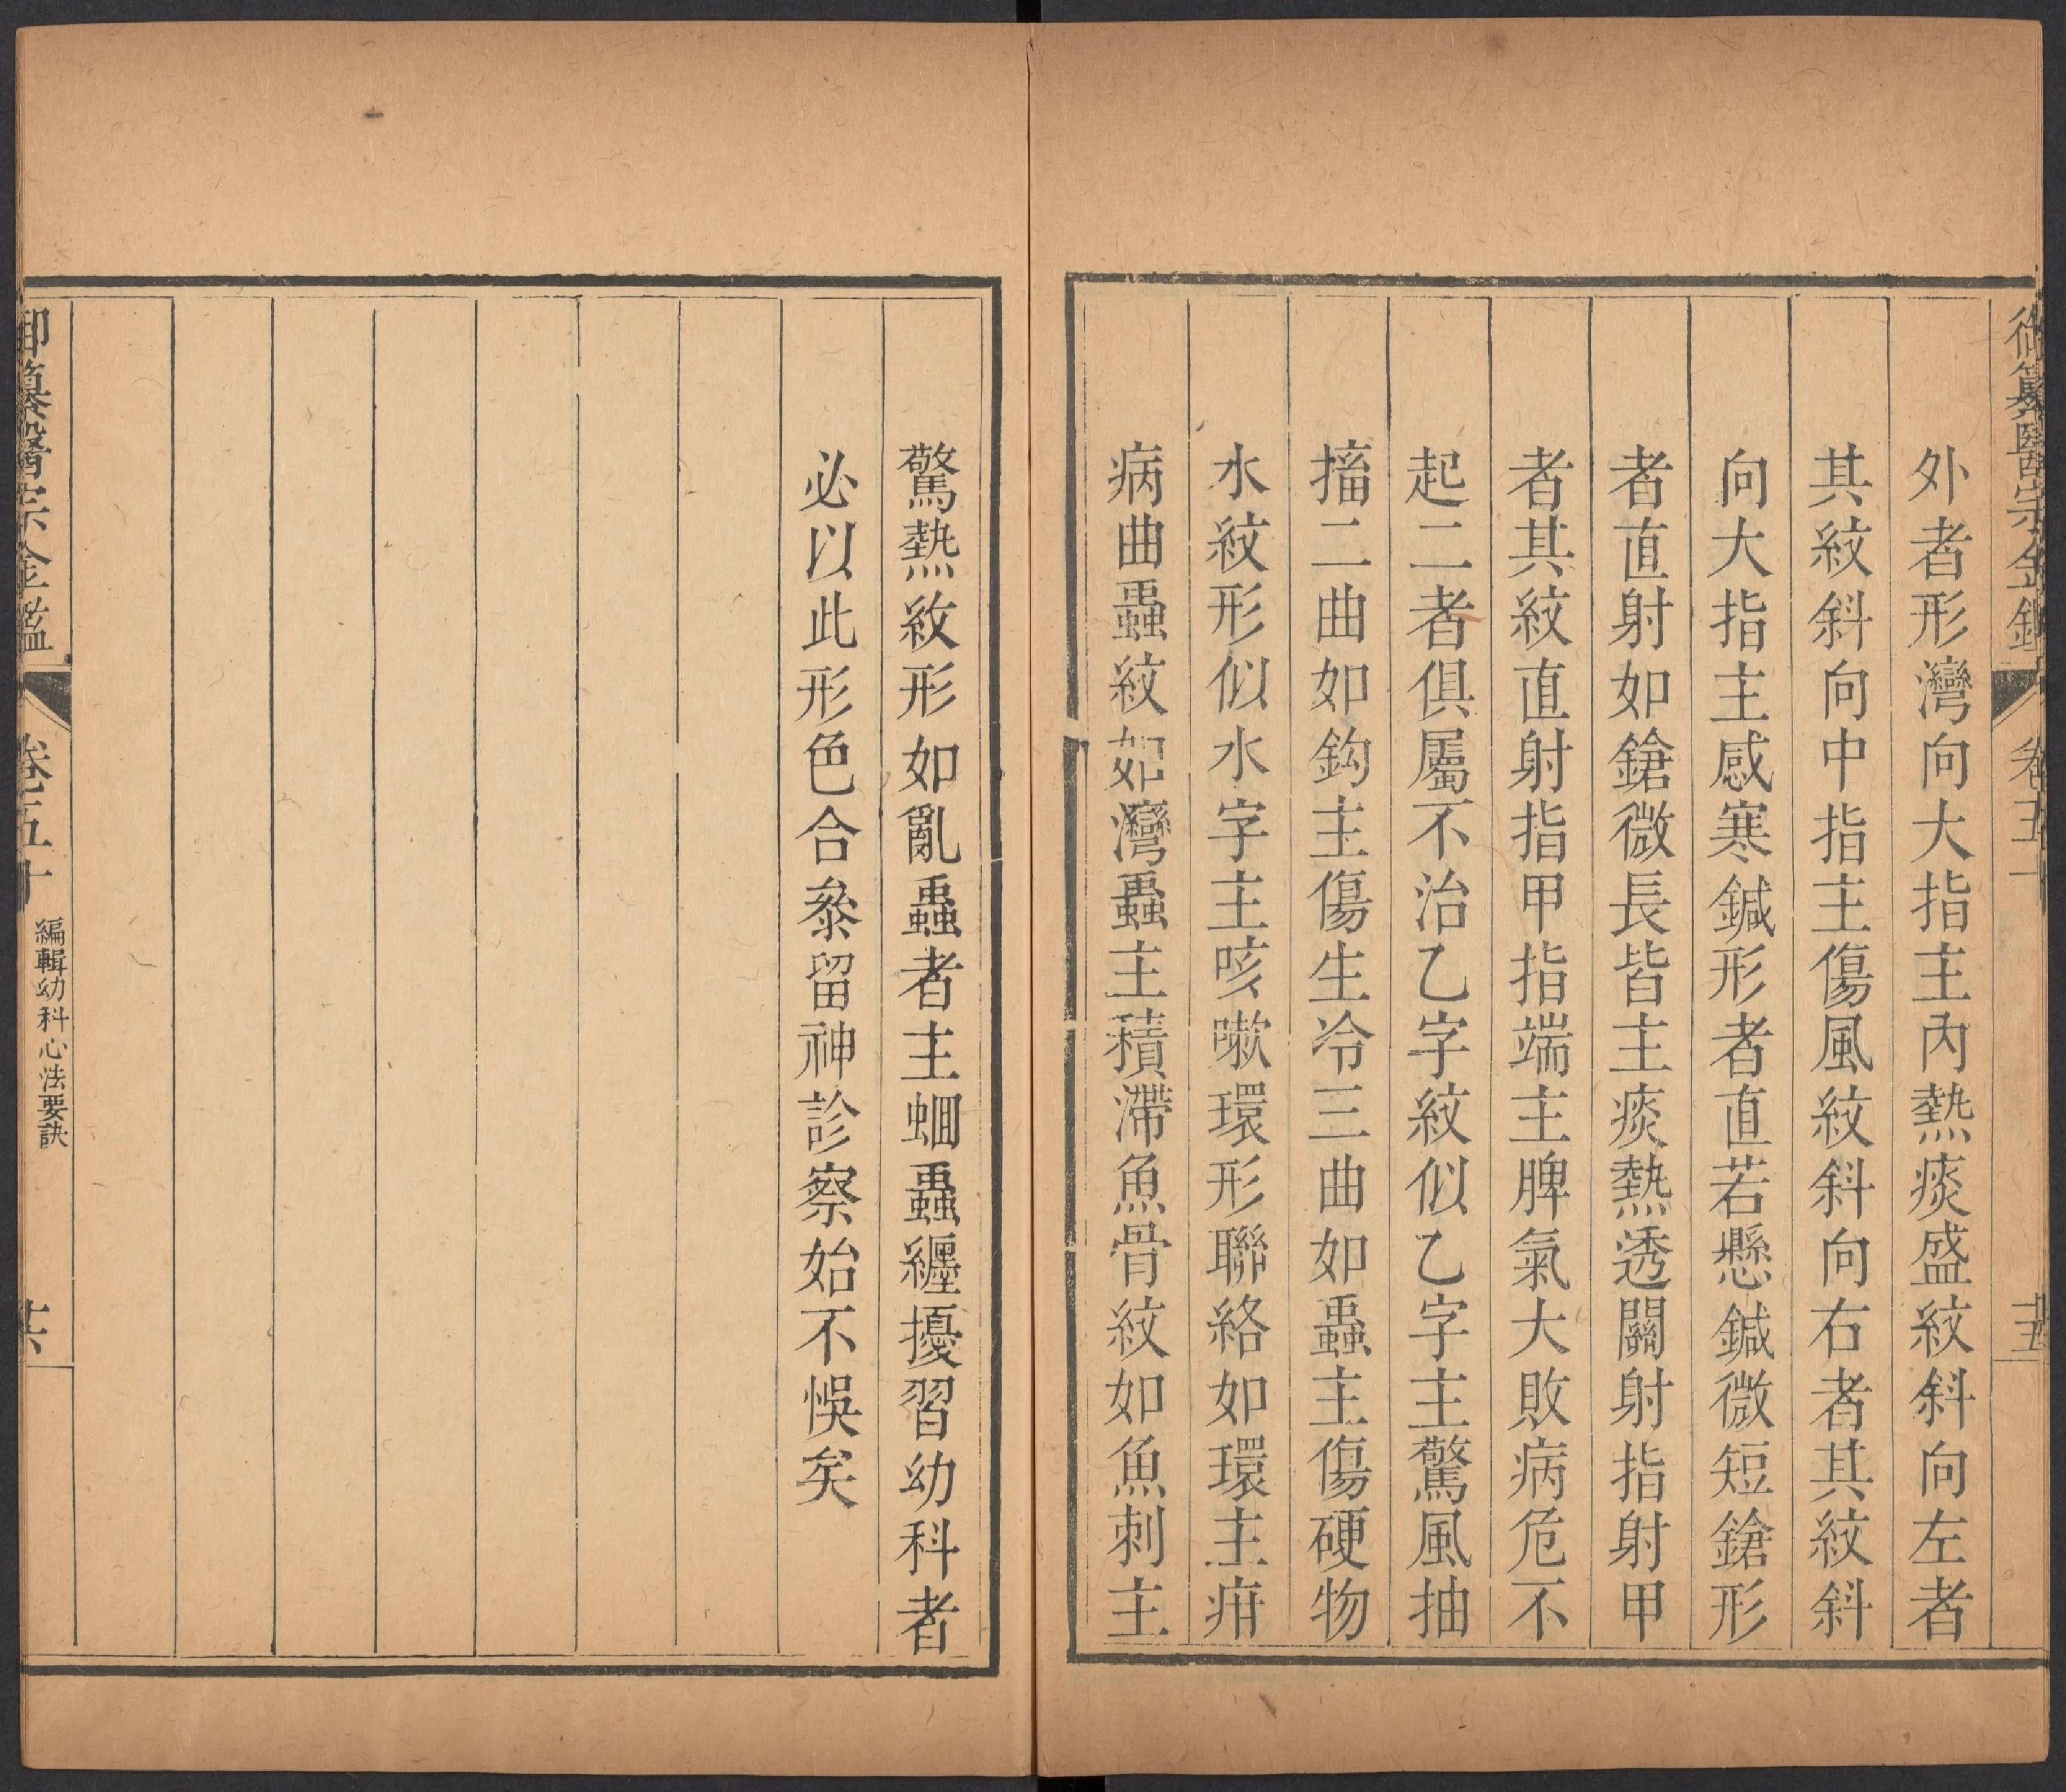 御纂醫宗金鑑
卷五十
外者形灣向大指主內熱痰盛紋斜向左者
其紋斜向中指主傷風紋斜向右者其紋斜
向大指主感寒鍼形者直若懸鍼微短鎗形
者直射如鎗微長皆主痰熱透關射指射甲
者其紋直射指甲指端主脾氣大敗病危不
起二者俱屬不治乙字紋似乙字主驚風抽
搐二曲如鈎主傷生冷三曲如蟲主傷硬物
水紋形似水字主咳嗽環形聯絡如環主疳
病曲蟲紋如灣蟲主積滯魚骨紋如魚刺主
驚熱紋形如亂蟲者主蛔蟲纏擾習幼科者
必以此形色合叅留神診察始不悞矣
御纂醫宗金鑑
卷五十
編輯幼科心法要訣